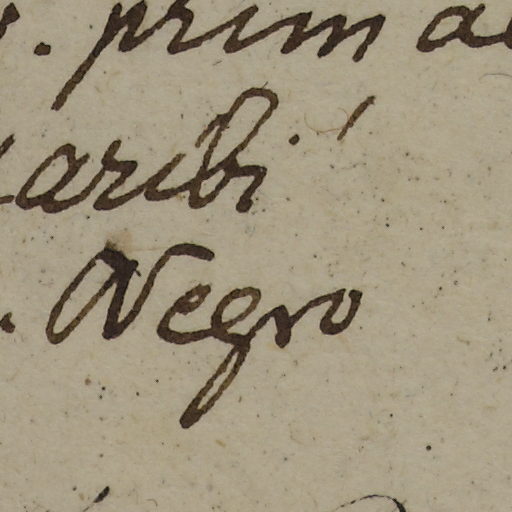 prim
aribi
Negro